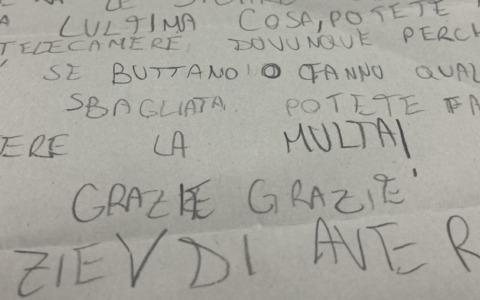 LE
A LULTIMA COSA, POTETE
TELECAMERE, DOVUNQUE PERCH
SE BUTTANO O FANNO QUAL
SBAGLIATA. POTETE FA
ERE LA MULTA
GRAZIE GRAZIE
ZIE DI AVER